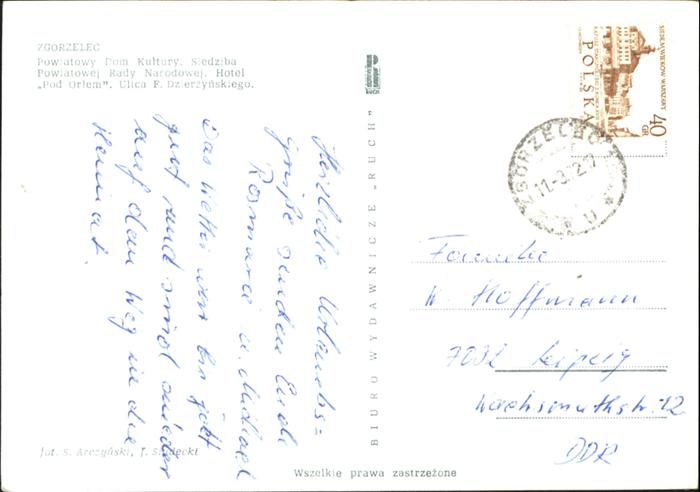 ZGORZELEC
Powiatowy Dom Kultury. Siedziba
Powiatowej Rady Narodowej. Hotel
„Pod Orłem". Ulica F. Dzierżyńskiego.
Herzliche Urlaubs=
grüße senden Euch
Rosmarie u. Michael
Das Wetter war bis jetzt
gut und sind wieder
auf dem Weg in die
Heimat.
fot. S. Arczyński,
BIURO WYDAWNICZE „RUCH"
Wszelkie prawa zastrzeżone
SIEDEM WIEKÓW WARSZAWY
POLSKA
40
GR
ZGORZELEC
Familie
W. Hoffmann
7032 Leipzig
Wachsmuthstr. 12
DDR